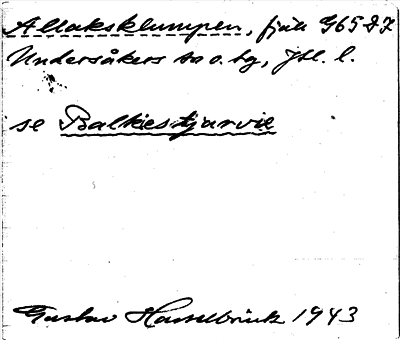 Allaksklumpen, fjäll G65 D7
Undersåkers sn o. tg, Jtl. l.
se Balkiestjarvie
Gustav Hasselbrink 1943